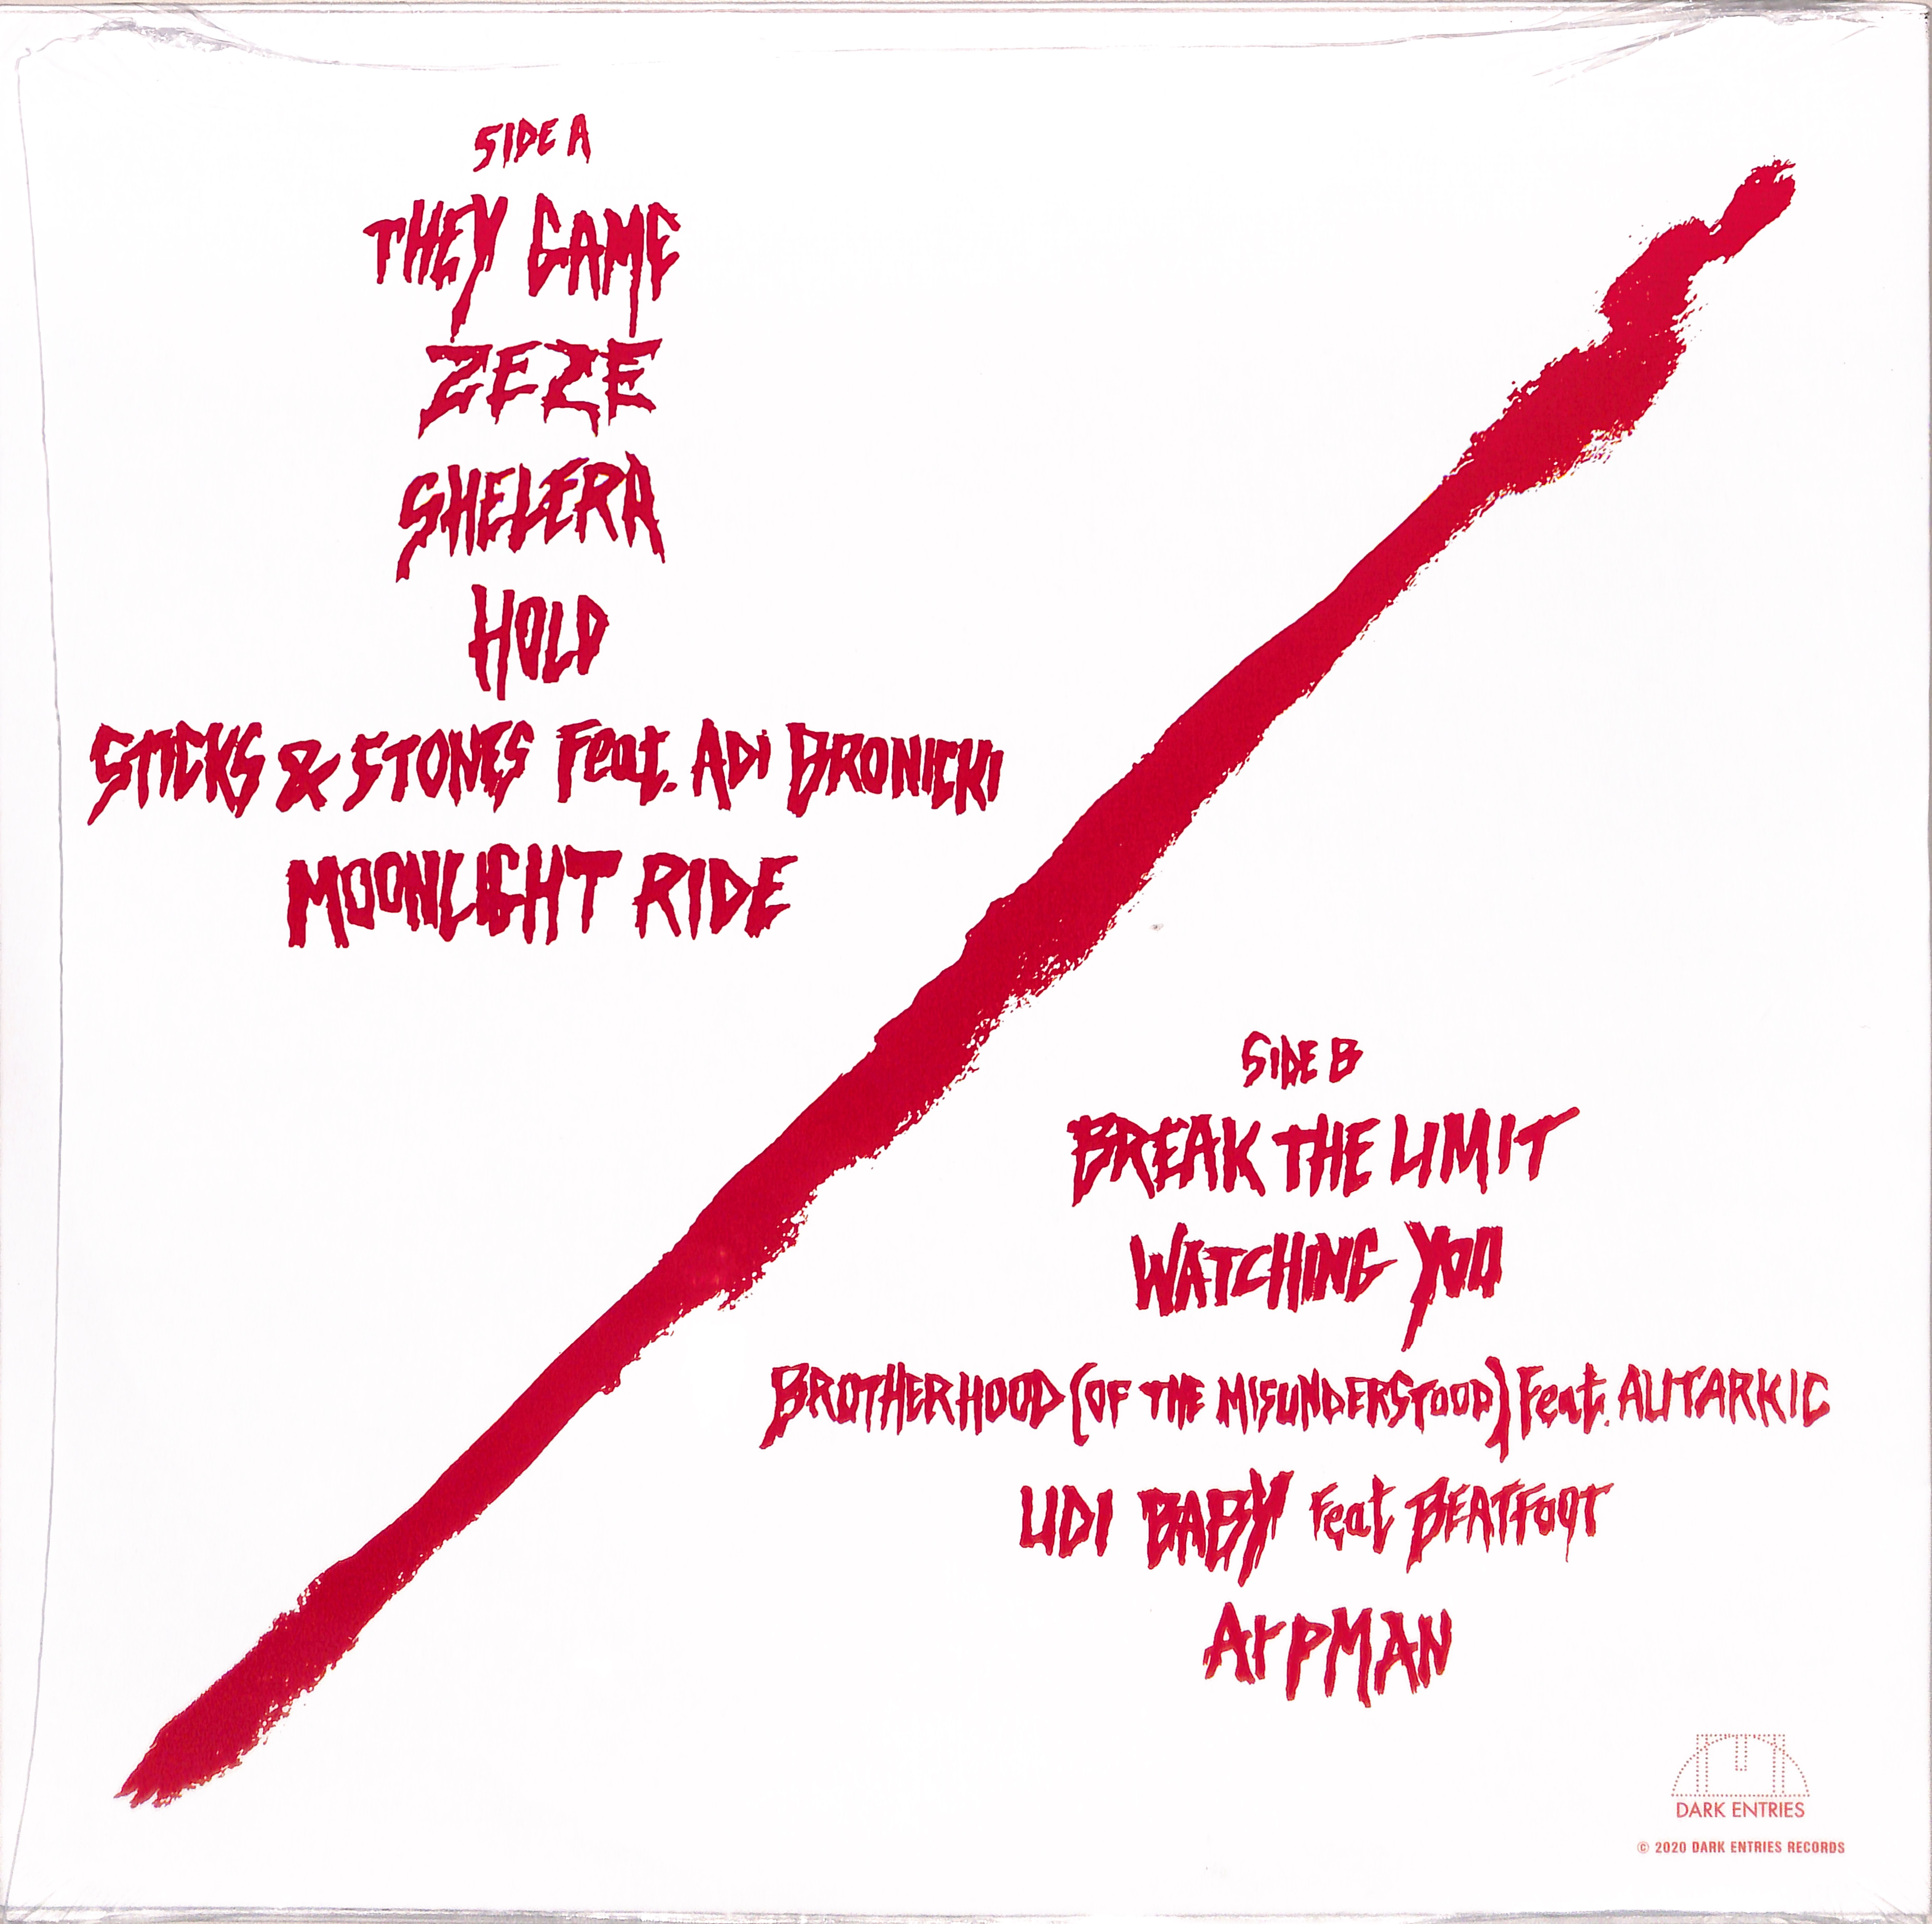 SIDE A
THEY GAME
ZEZE
SHELERA
HOLD
STICKS & STONES Feat. ADi BRONICKI
MOONLIGHT RIDE
SIDE B
BREAK THE LIMIT
WATCHING YOU
BROTHERHOOD (OF THE MISUNDERSTOOD) Feat. AUTARKIC
UDI BABY Feat BEATFOOT
ArPMAN
DARK ENTRIES
© 2020 DARK ENTRIES RECORDS